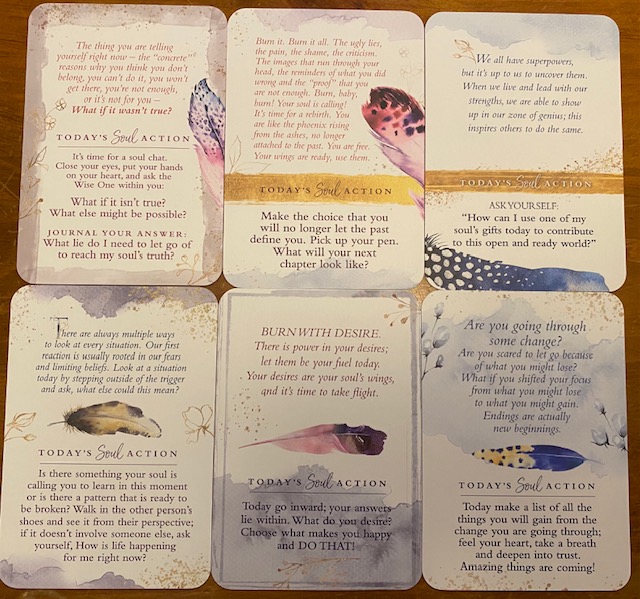 The thing you are telling
yourself right now – the "concrete"
reasons why you think you don't
belong, you can't do it, you won't
get there, you're not enough,
or it's not for you –
What if it wasn't true?
TODAY'S Soul ACTION
It's time for a soul chat.
Close your eyes, put your hands
on your heart, and ask the
Wise One within you:
What if it isn't true?
What else might be possible?
JOURNAL YOUR ANSWER:
What lie do I need to let go of
to reach my soul's truth?
Burn it. Burn it all. The ugly lies,
the pain, the shame, the criticism.
The images that run through your
head, the reminders of what you did
wrong and the "proof" that you
are not enough. Burn, baby,
burn! Your soul is calling!
It's time for a rebirth. You
are like the phoenix rising
from the ashes, no longer
attached to the past. You are free.
Your wings are ready, use them.
TODAY'S Soul ACTION
Make the choice that you
will no longer let the past
define you. Pick up your pen.
What will your next
chapter look like?
We all have superpowers,
but it's up to us to uncover them.
When we live and lead with our
strengths, we are able to show
up in our zone of genius; this
inspires others to do the same.
TODAY'S Soul ACTION
ASK YOURSELF:
"How can I use one of my
soul's gifts today to contribute
to this open and ready world?"
There are always multiple ways
to look at every situation. Our first
reaction is usually rooted in our fears
and limiting beliefs. Look at a situation
today by stepping outside of the trigger
and ask, what else could this mean?
TODAY'S Soul ACTION
Is there something your soul is
calling you to learn in this moment
or is there a pattern that is ready to
be broken? Walk in the other person's
shoes and see it from their perspective;
if it doesn't involve someone else, ask
yourself, How is life happening
for me right now?
BURN WITH DESIRE.
There is power in your desires;
let them be your fuel today.
Your desires are your soul's wings,
and it's time to take flight.
TODAY'S Soul ACTION
Today go inward; your answers
lie within. What do you desire?
Choose what makes you happy
and DO THAT!
Are you going through
some change?
Are you scared to let go because
of what you might lose?
What if you shifted your focus
from what you might lose
to what you might gain.
Endings are actually
new beginnings.
TODAY'S Soul ACTION
Today make a list of all the
things you will gain from the
change you are going through;
feel your heart, take a breath
and deepen into trust.
Amazing things are coming!